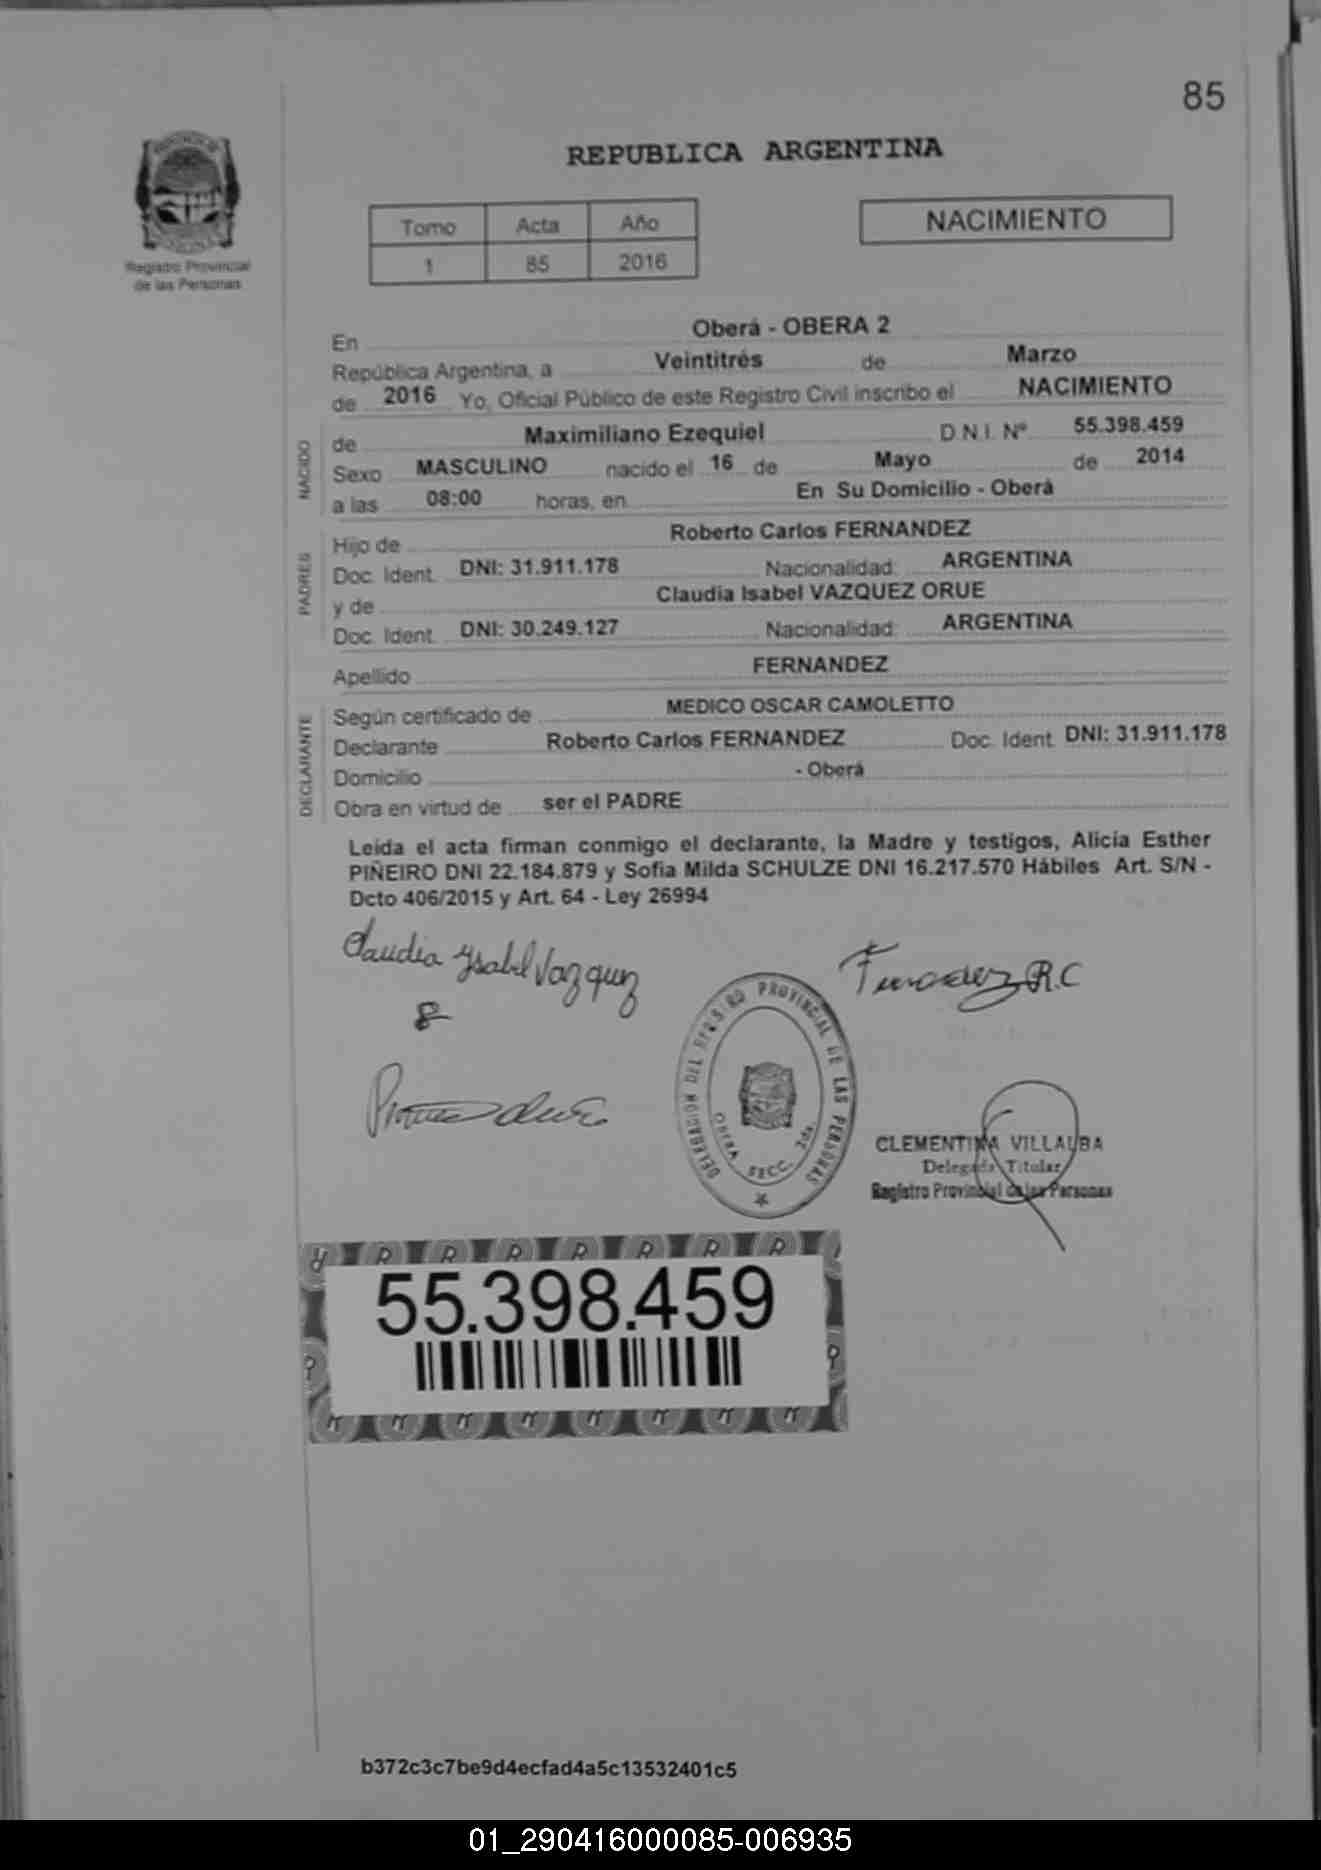 85
REPUBLICA ARGENTINA
Registro Provincial
de las Personas
Tomo Acta Año
1 85 2016
NACIMIENTO
En Oberá - OBERA 2
República Argentina, a Veintitrés de Marzo
de 2016 Yo, Oficial Público de este Registro Civil inscribo el NACIMIENTO
NACIDO
de Maximiliano Ezequiel D.N.I. Nº 55.398.459
Sexo MASCULINO nacido el 16 de Mayo de 2014
a las 08:00 horas, en En Su Domicilio - Oberá
PADRES
Hijo de Roberto Carlos FERNANDEZ
Doc. Ident. DNI: 31.911.178 Nacionalidad: ARGENTINA
y de Claudia Isabel VAZQUEZ ORUE
Doc. Ident. DNI: 30.249.127 Nacionalidad: ARGENTINA
Apellido FERNANDEZ
DECLARANTE
Según certificado de MEDICO OSCAR CAMOLETTO
Declarante Roberto Carlos FERNANDEZ Doc. Ident. DNI: 31.911.178
Domicilio - Oberá
Obra en virtud de ser el PADRE
Leída el acta firman conmigo el declarante, la Madre y testigos, Alicia Esther
PIÑEIRO DNI 22.184.879 y Sofia Milda SCHULZE DNI 16.217.570 Hábiles Art. S/N -
Dcto 406/2015 y Art. 64 - Ley 26994
Claudia Ysabel Vazquez
R.C
DELEGACION DEL REGISTRO PROVINCIAL DE LAS PERSONAS
OBERA SECC. 2da.
CLEMENTINA VILLALBA
Delegada Titular
Registro Provincial de las Personas
55.398.459
b372c3c7be9d4ecfad4a5c13532401c5
01_290416000085-006935